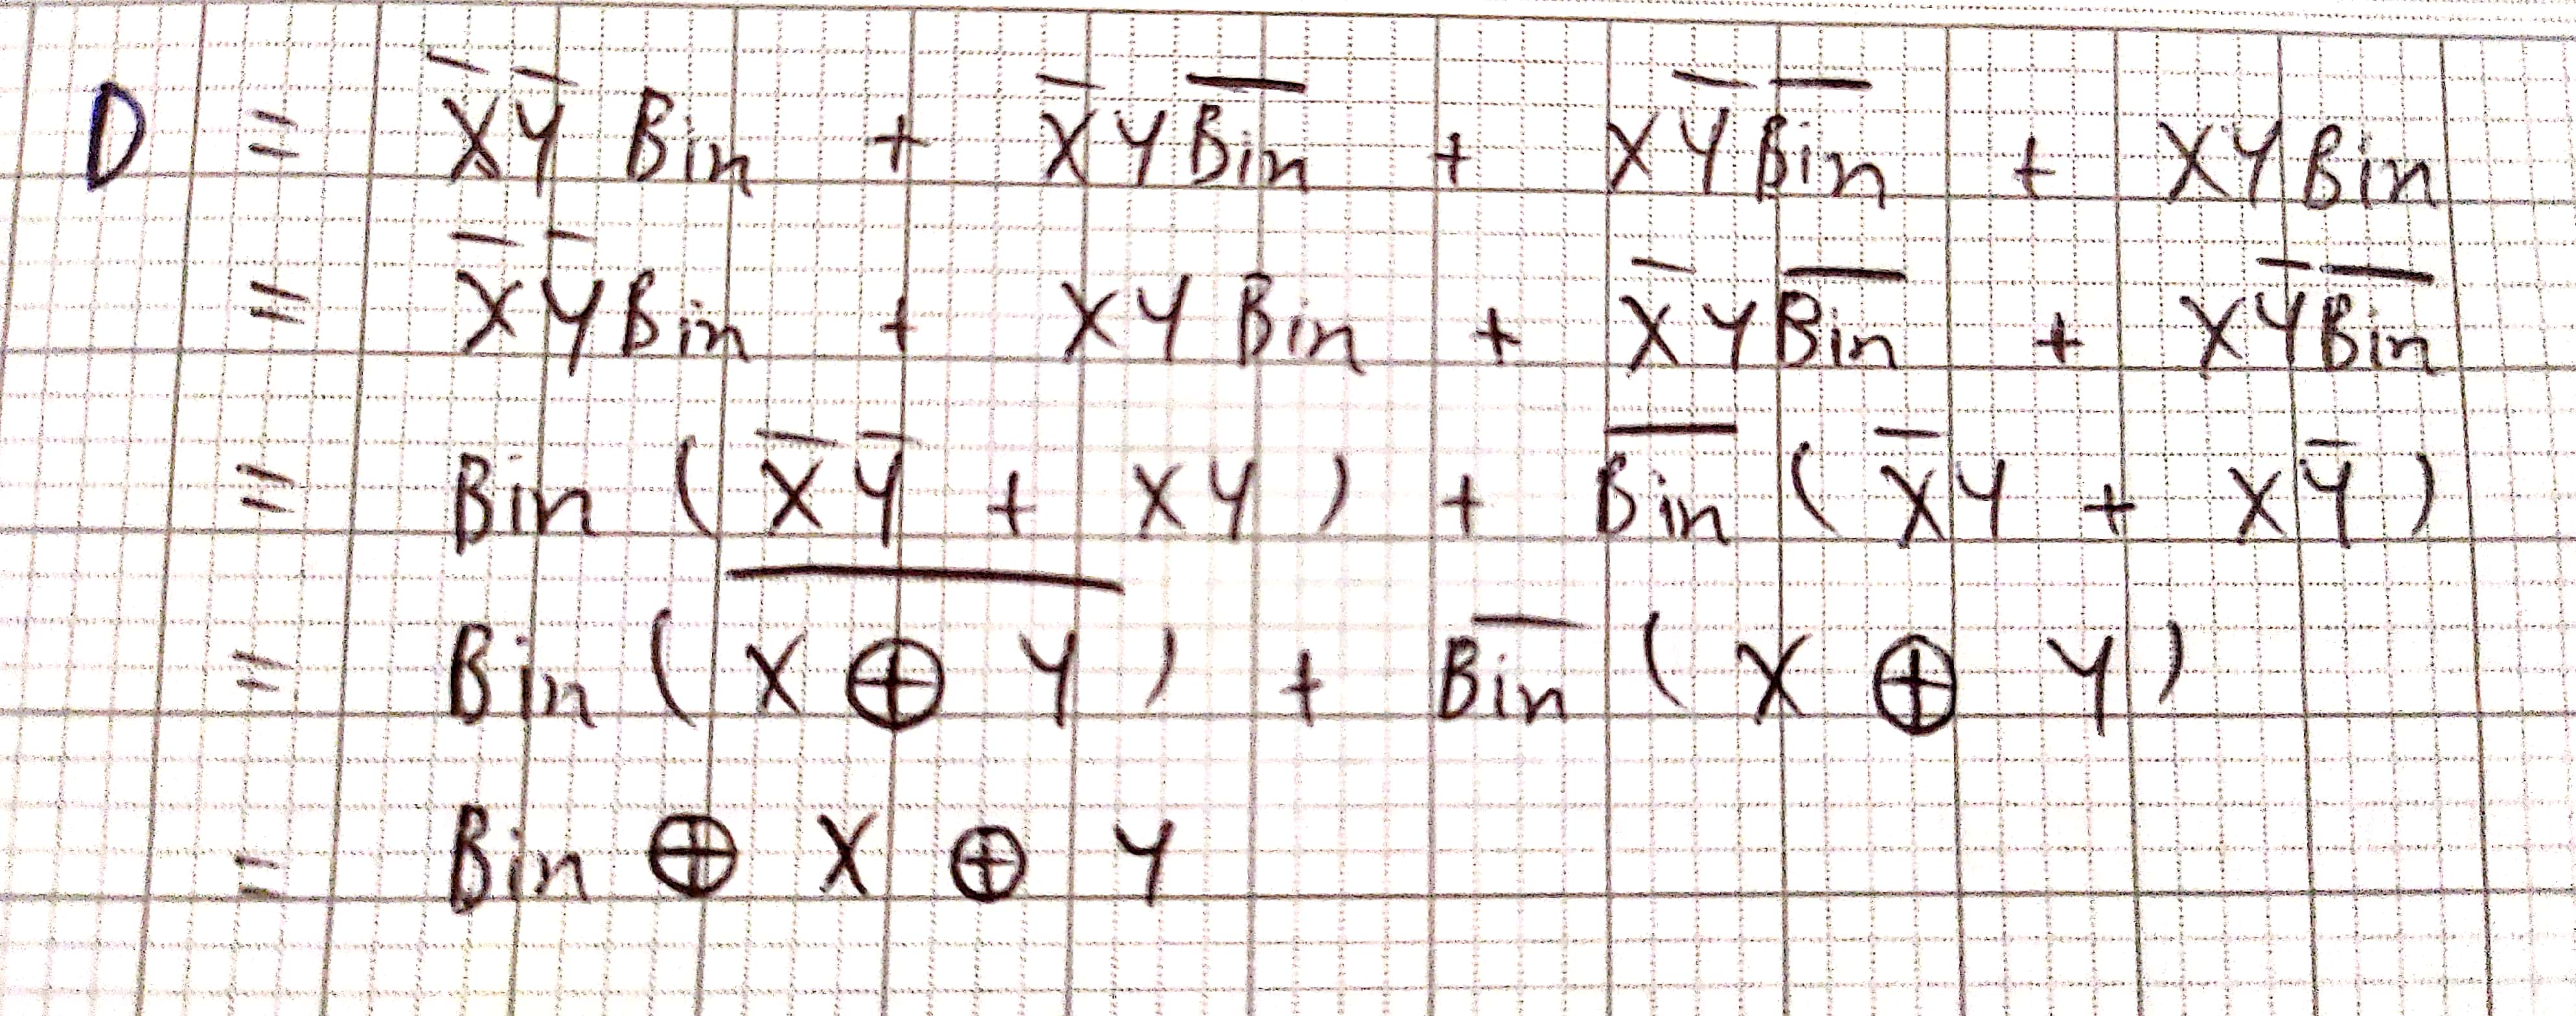 D = X̅Y̅ Bin + X̅Y B̅i̅n̅ + XY̅ B̅i̅n̅ + XY Bin
= X̅Y̅ Bin + XY Bin + X̅Y B̅i̅n̅ + XY̅ B̅i̅n̅
= Bin ( X̅Y̅ + XY ) + B̅i̅n̅ ( X̅Y + XY̅ )
= Bin ( X̅ ̅⊕̅ ̅Y̅ ) + B̅i̅n̅ ( X ⊕ Y )
= Bin ⊕ X ⊕ Y